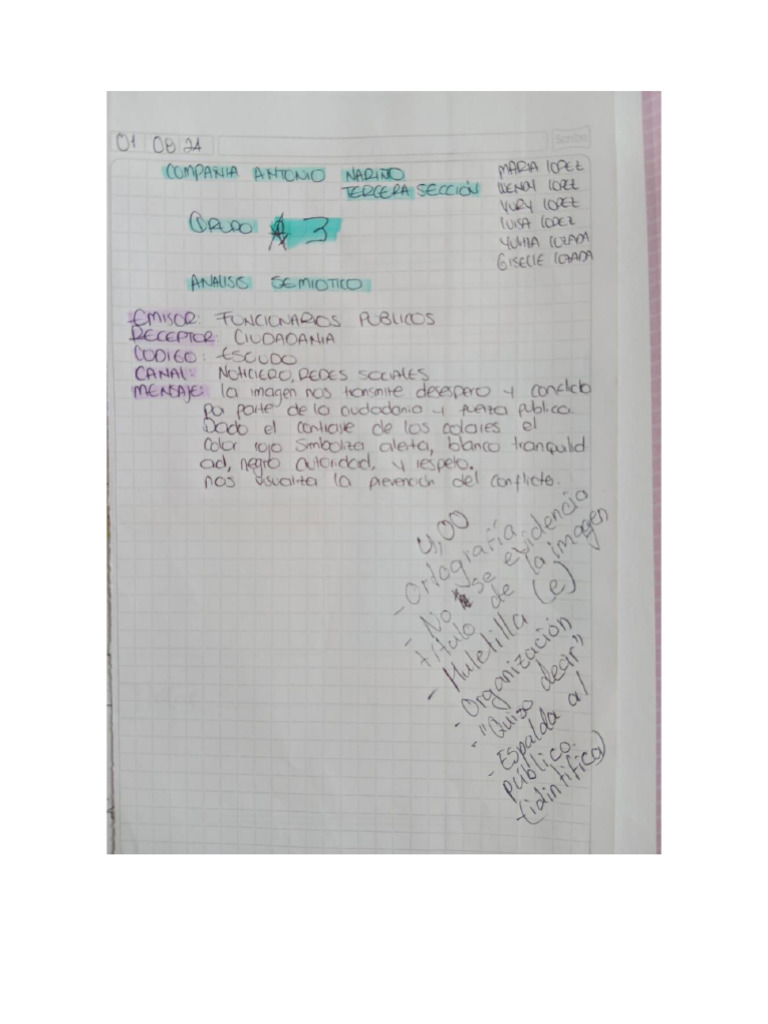 01 08 24
Scribe
COMPAÑIA ANTONIO NARIÑO
TERCERA SECCIÓN
MARIA LOPEZ
WENDY LOPEZ
YURY LOPEZ
LUISA LOPEZ
YULITZA LOZADA
GISELLE LOZADA
GRUPO # 3
ANALISIS SEMIOTICO
EMISOR: FUNCIONARIOS PUBLICOS
RECEPTOR: CIUDADANIA
CODIGO: ESCUDO
CANAL: NOTICIERO, REDES SOCIALES
MENSAJE: la imagen nos transmite desespero y conflicto
por parte de la ciudadania y fuerza publica.
Dado el contraste de los colores el
color rojo simboliza alerta, blanco tranquilid
ad, negro autoridad, y respeto.
nos visualiza la prevencion del conflicto.
4,00
- Ortografía
- No se evidencia
título de la imagen
- Muletilla (e)
- Organización
- "Quiso decir"
- Espalda al
público.
- (idintifica)